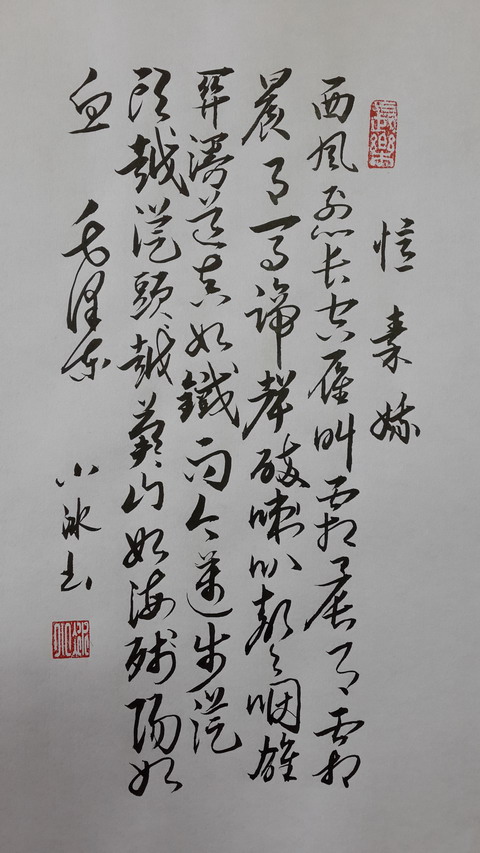 長樂
憶秦娥
西风烈长空雁叫霜晨月霜
晨月马蹄聲碎喇叭声咽雄
關漫道真如鐵而今邁步從
头越從頭越蒼山如海残阳如
血 毛泽东 小冰书